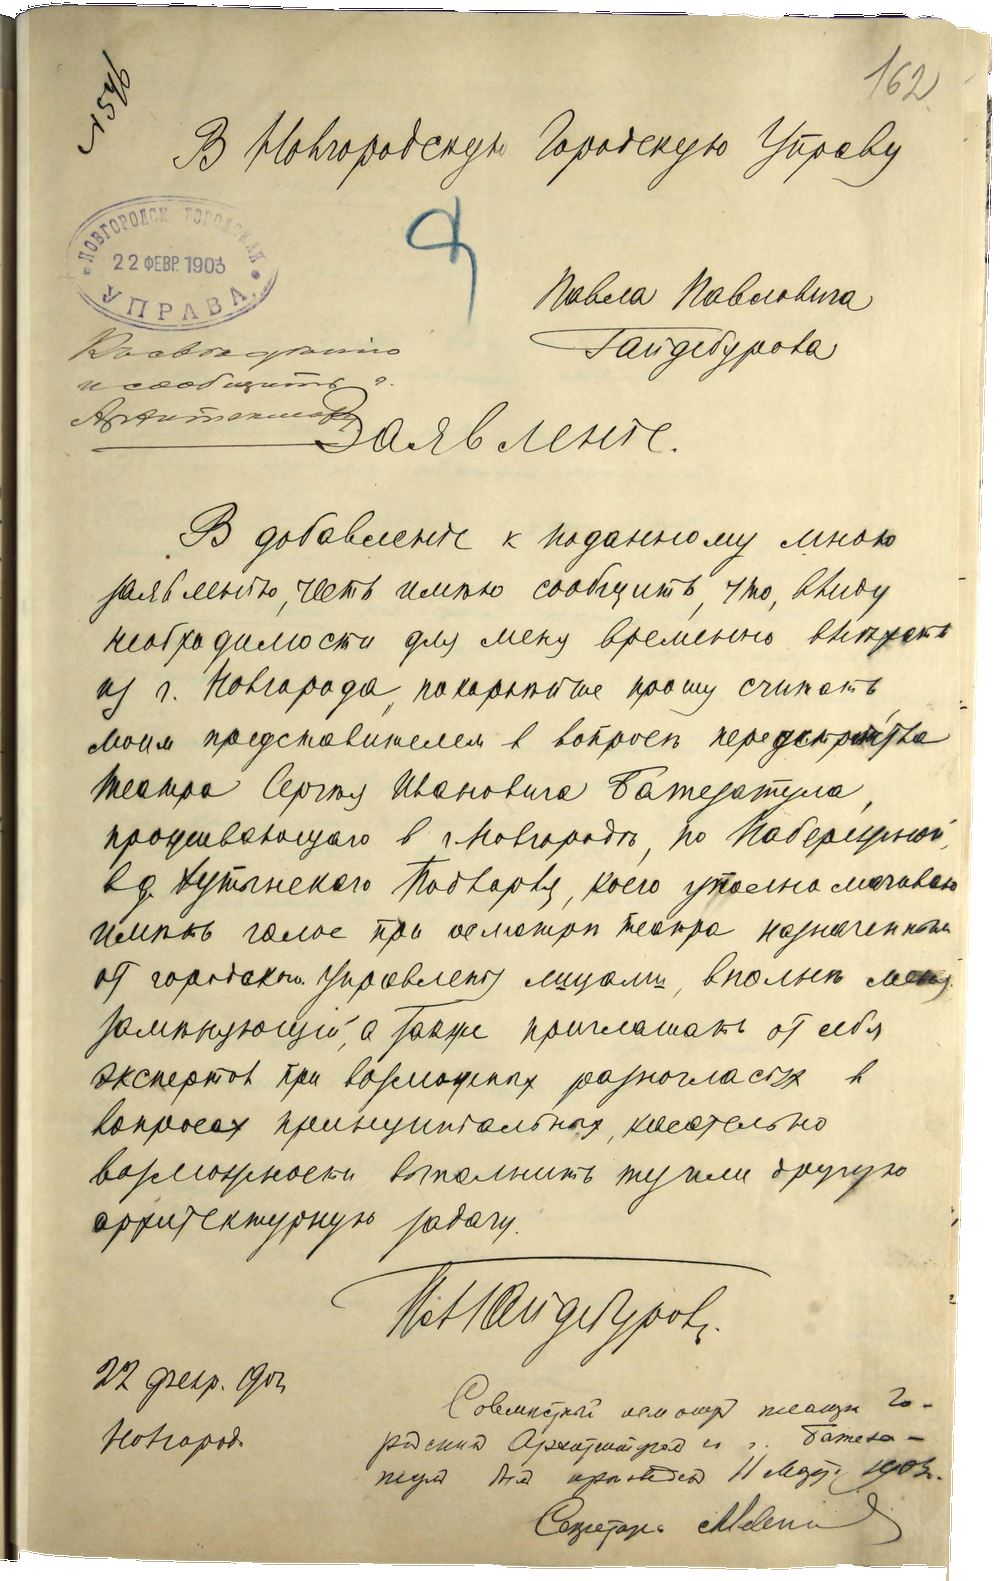 162
№ 546
В Новгородскую Городскую Управу
НОВГОРОДСК ГОРОДСКАЯ
22 ФЕВР. 1903
УПРАВА
Павла Павловича
Гайдебурова
К сведению
и сообщить г.
Архитектору
Заявленіе.
В добавленіе к поданному мною
заявленію, честь имѣю сообщить, что, ввиду
необходимости для меня временно выѣхать
из г. Новгорода, покорнѣйше прошу считать
моим представителем в вопросѣ переустройства
театра Сергѣя Ивановича Батезатула,
проживающаго в г. Новгородѣ, по Набережной,
в д. Хутынскаго Подворья, коего уполномочиваю
имѣть голос при осмотрѣ театра назначенными
от городского Управленія лицами, вполнѣ меня
замѣняющій, а также приглашать от себя
экспертов при возможных разногласіях в
вопросах принципіальных, касательно
возможности выполнить ту или другую
архитектурную задачу.
Пав Гайдебуров.
22 февр. 903
Новгород
Совместный осмотр театра Го-
родским Архитектором и г. Батеза-
тулом 11 Марта 1903 г.
Секретарь